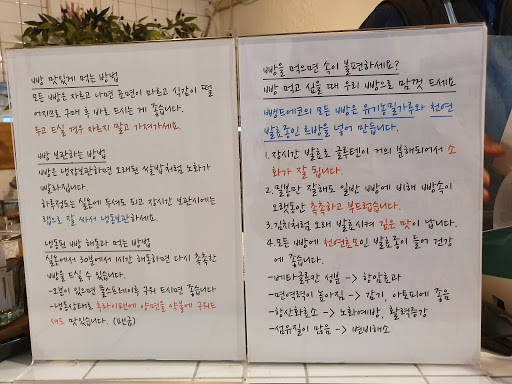 빵 맛있게 먹는 방법
모든 빵은 자르고 나면 표면이 마르고 식감이 떨
어지므로 구매 후 바로 드시는 게 좋습니다.
두고 드실 경우 자르지 말고 가져가세요.
빵 보관하는 방법
빵은 냉장보관하면 오래된 쌀밥처럼 노화가
빨라집니다.
하루정도는 실온에 두셔도 되고 장시간 보관시에는
랩으로 잘 싸서 냉동보관하세요.
냉동된 빵 해동과 먹는 방법
실온에서 30분에서 1시간 해동하면 다시 촉촉한
빵을 드실 수 있습니다.
-오븐이 있으면 물스프레이후 구워 드시면 좋습니다
-냉동상태로 후라이팬에 양면을 약불에 구워드
셔도 맛있습니다. (팬굽)
빵을 먹으면 속이 불편하세요?
빵 먹고 싶을 때 우리 빵으로 맘껏 드세요
뺑드에코의 모든 빵은 유기농밀가루와 천연
발효종인 르방을 넣어 만듭니다.
1.장시간 발효로 글루텐이 거의 분해되어서 소
화가 잘 됩니다.
2.밀봉만 잘해도 일반 빵에 비해 빵속이
오랫동안 촉촉하고 부드럽습니다.
3.김치처럼 오래 발효시켜 깊은 맛이 납니다.
4.모든 빵에 천연효모인 발효종이 들어 건강
에 좋습니다.
-베타글루칸 성분 -> 항암효과
-면역력이 높아짐 -> 감기, 아토피에 좋음
-항산화효소 -> 노화예방, 활력증강
-섬유질이 많음 -> 변비해소